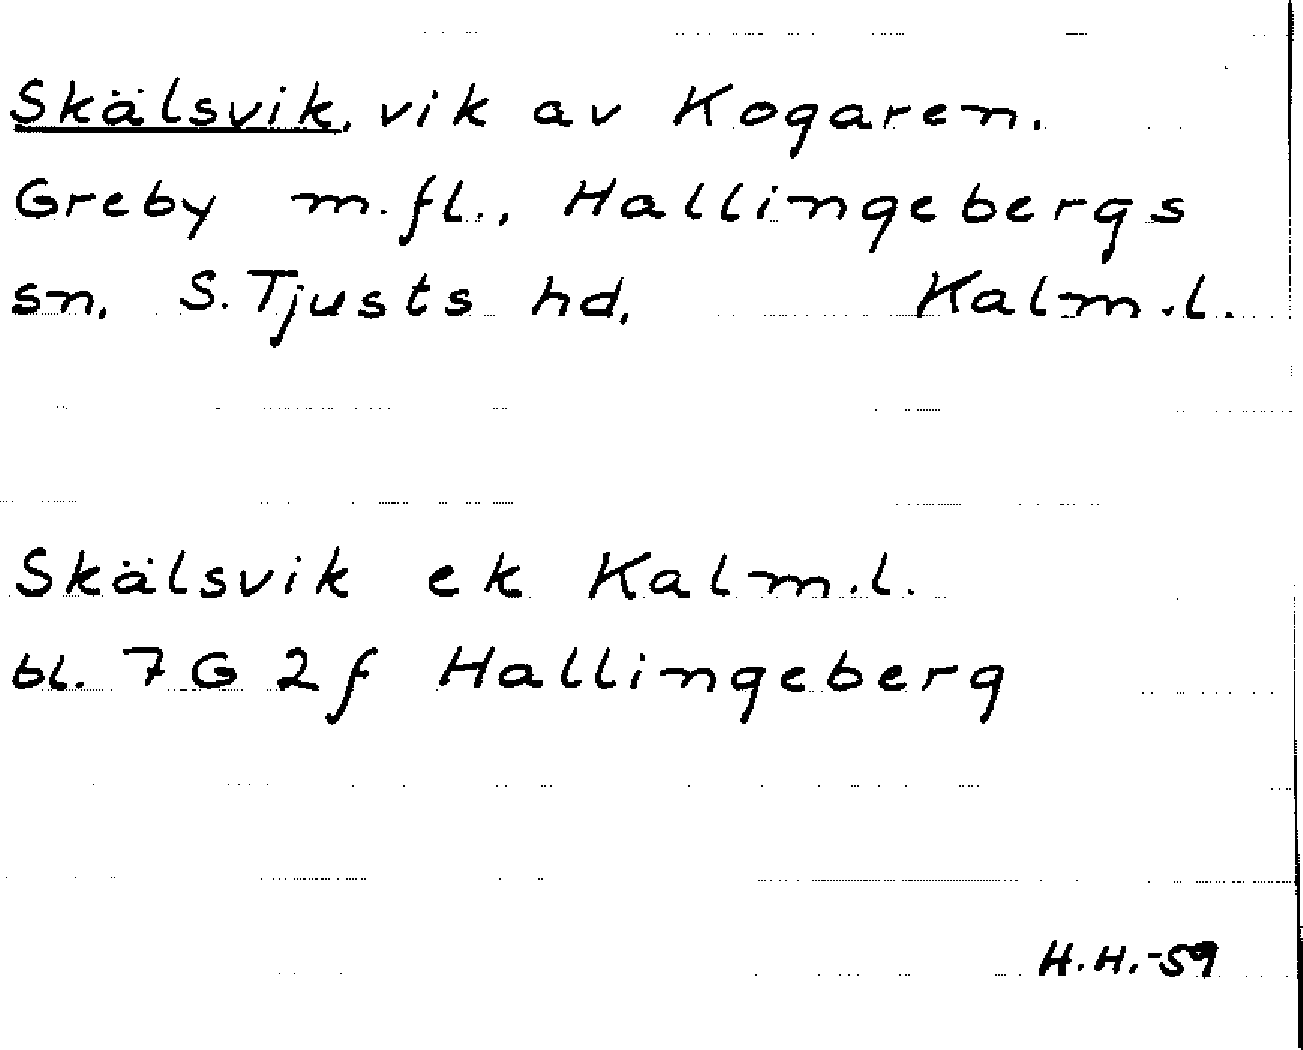 Skälsvik, vik av Kogaren.
Greby m.fl., Hallingebergs
sn. S. Tjusts hd. Kalm.l.
Skälsvik ek Kalm.l.
bl. 7 G 2f Hallingeberg
H.H.-59